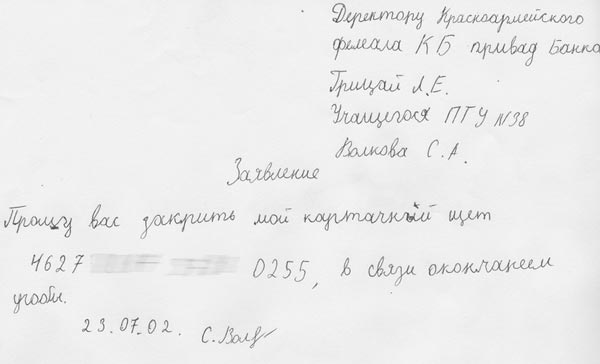 Деректору Красноармейского
фелеала КБ привад Банка
Грицай Л.Е.
Учащегося ПТУ №38
Волкова С.А.
Заявление
Прошу вас закрить мой картачный щет
4627 0255, в связи окончанеем
учоби.
23.07.02. С.Волк